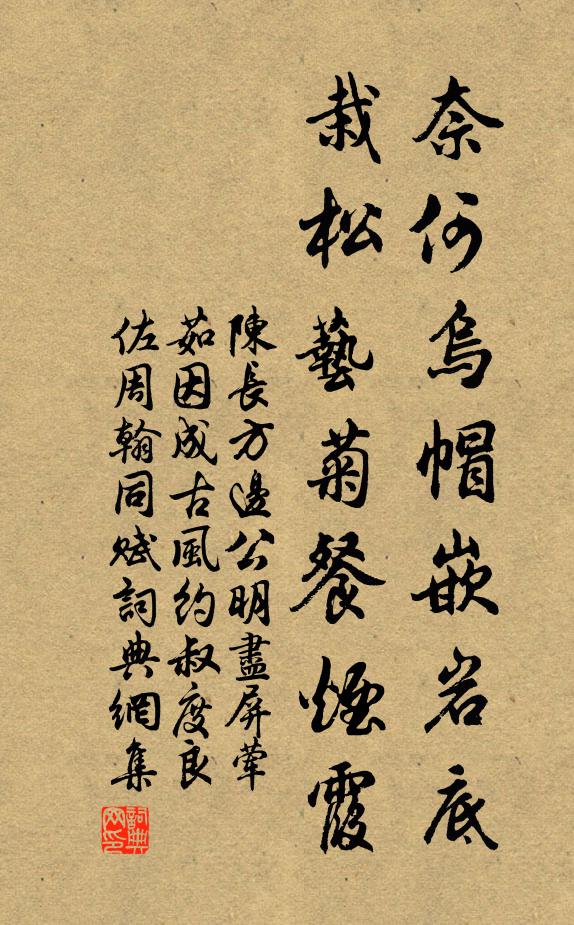 奈何烏帽嵌岩底
栽松藝菊餐煙霞
陳長方邊公明盡屏葷
茹因成古風約叔度良
佐周翰同賦詞典網集
詞典网印